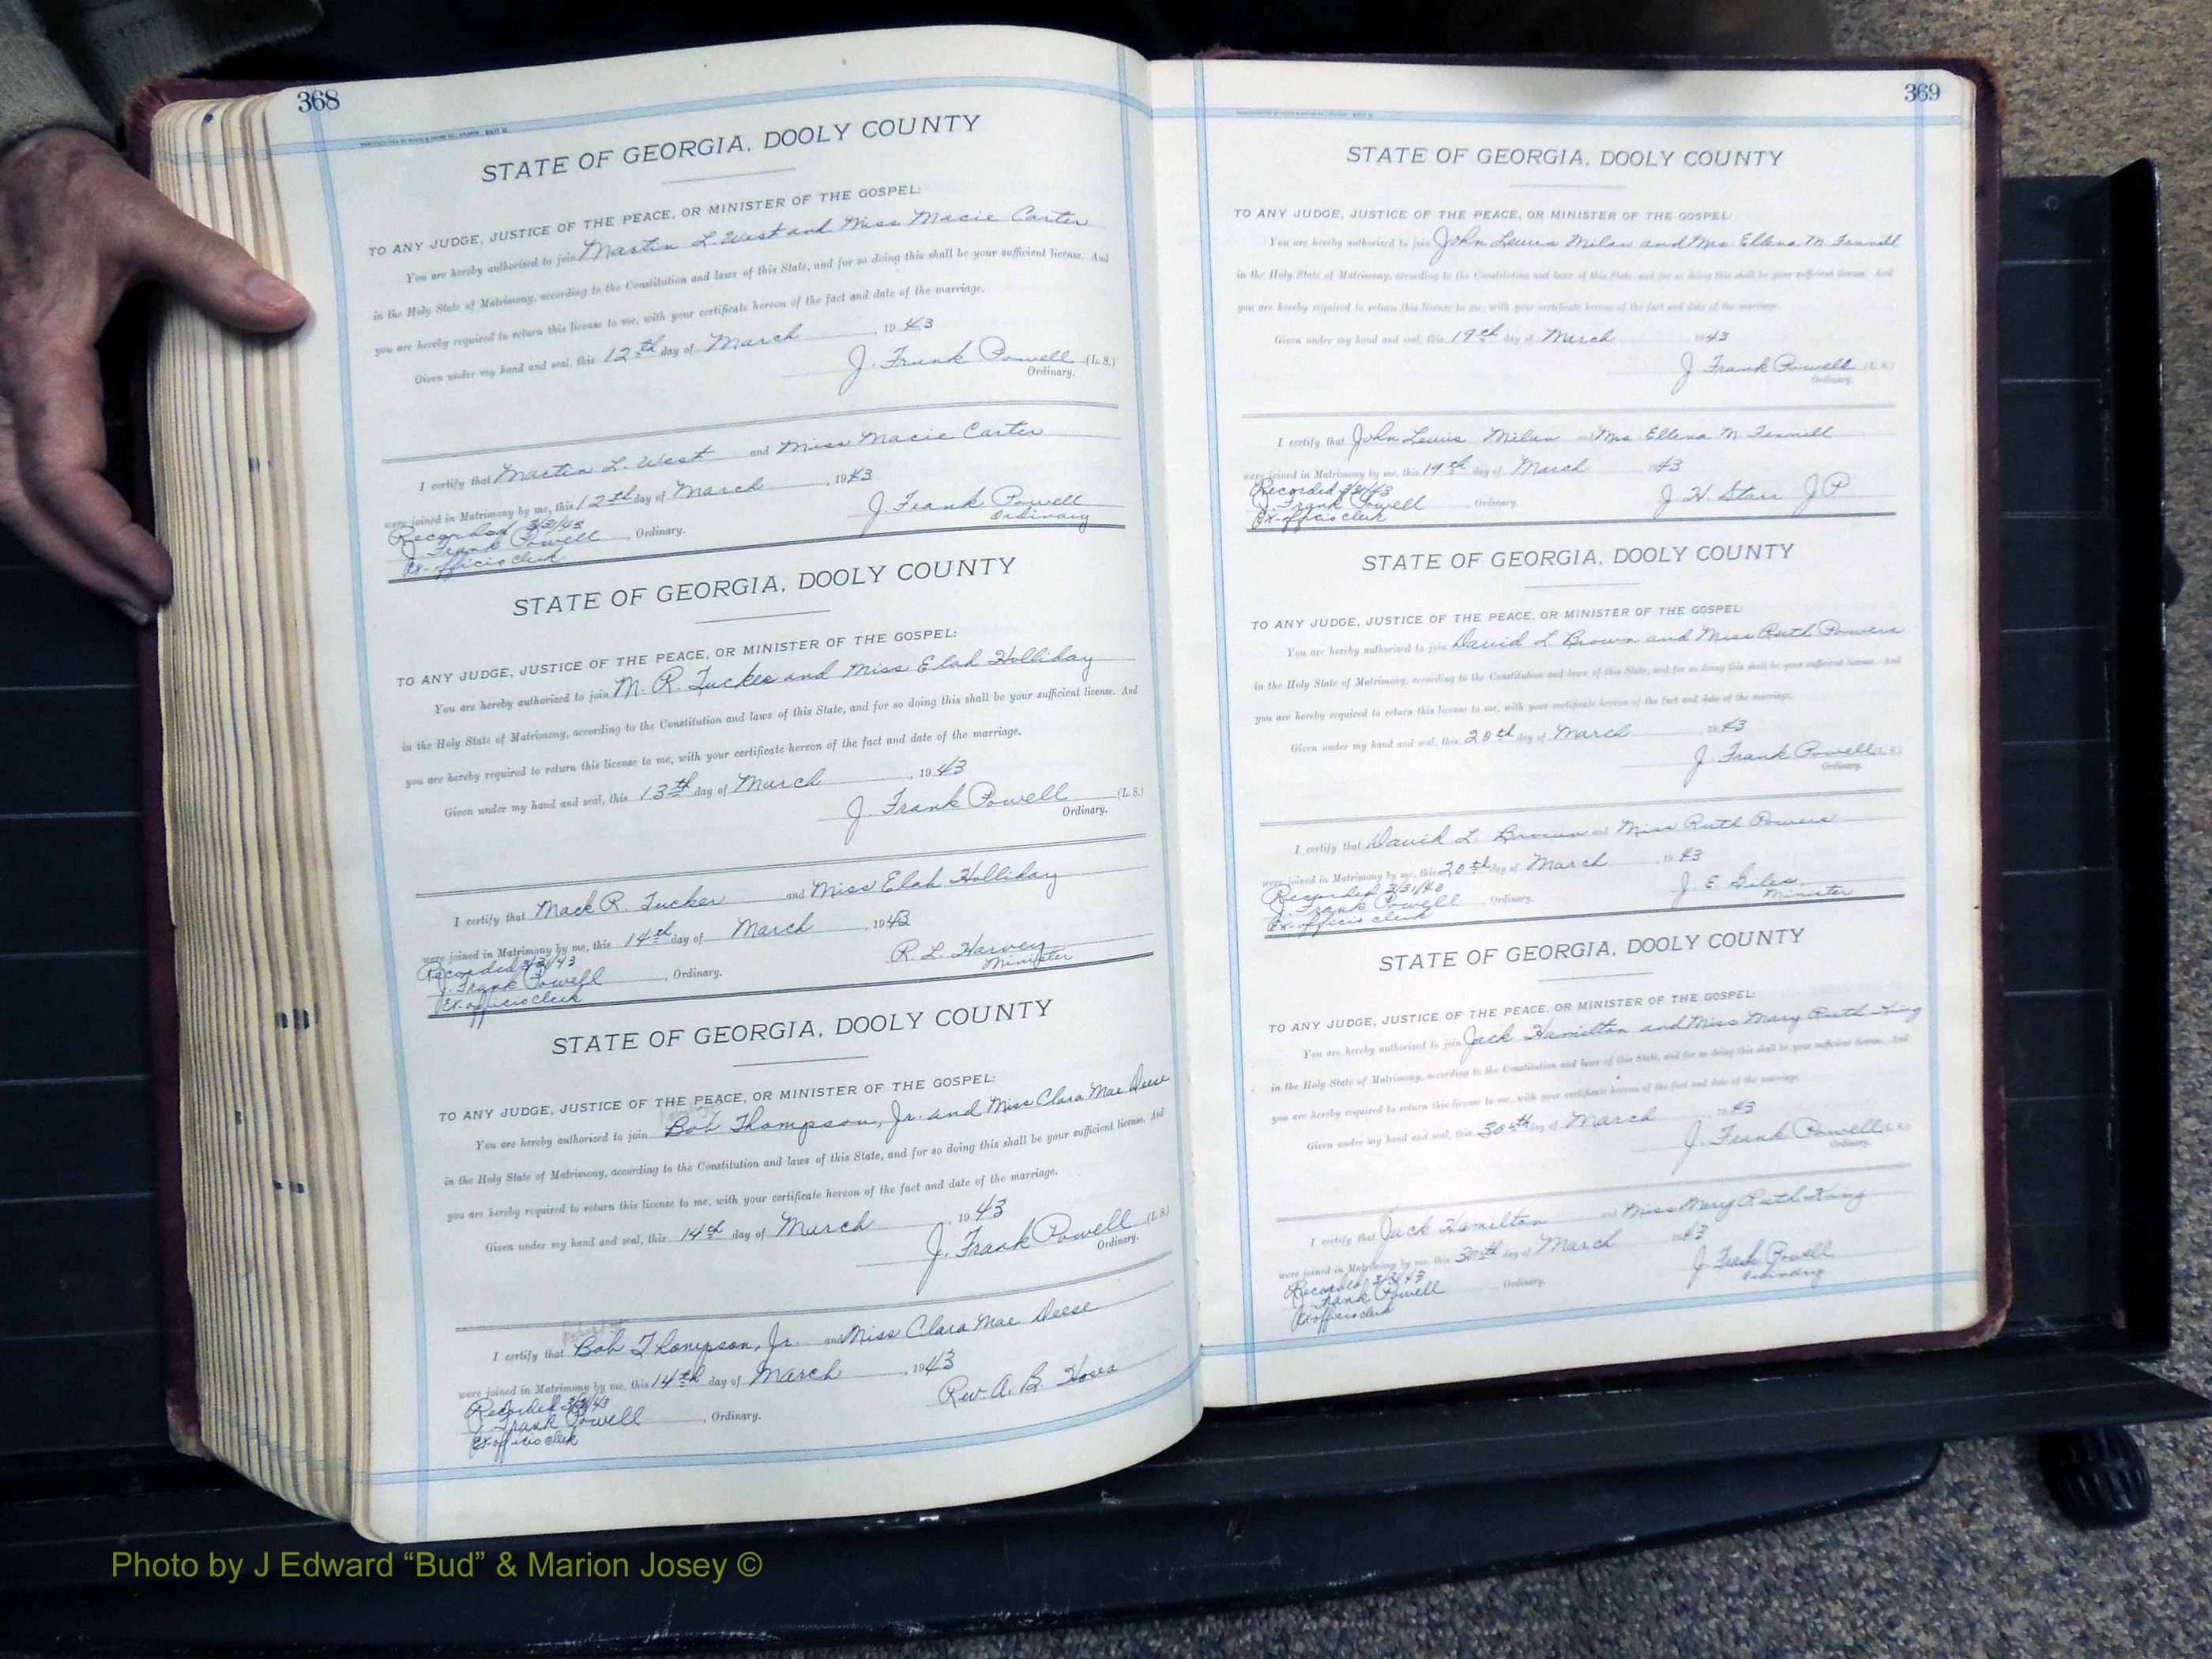 368
STATE OF GEORGIA, DOOLY COUNTY
TO ANY JUDGE, JUSTICE OF THE PEACE, OR MINISTER OF THE GOSPEL:
You are hereby authorized to join Martin L West and Miss Macie Carter
in the Holy State of Matrimony, according to the Constitution and laws of this State, and for so doing this shall be your sufficient license. And
you are hereby required to return this license to me, with your certificate hereon of the fact and date of the marriage.
Given under my hand and seal, this 12th day of March, 1943
J. Frank Powell (L. S.)
Ordinary.
I certify that Martin L. West and Miss Macie Carter
were joined in Matrimony by me, this 12th day of March, 1943
Recorded 3/31/43
J. Frank Powell
J. Frank Powell, Ordinary.
Ordinary
Ex-officio clerk
STATE OF GEORGIA, DOOLY COUNTY
TO ANY JUDGE, JUSTICE OF THE PEACE, OR MINISTER OF THE GOSPEL:
You are hereby authorized to join M. R. Tucker and Miss Elah Holliday
in the Holy State of Matrimony, according to the Constitution and laws of this State, and for so doing this shall be your sufficient license. And
you are hereby required to return this license to me, with your certificate hereon of the fact and date of the marriage.
Given under my hand and seal, this 13th day of March, 1943
J. Frank Powell (L. S.)
Ordinary.
I certify that Mack R. Tucker and Miss Elah Holliday
were joined in Matrimony by me, this 14th day of March, 1943
Recorded 3/31/43
R. L. Harvey
J. Frank Powell, Ordinary.
Minister
Ex-officio clerk
STATE OF GEORGIA, DOOLY COUNTY
TO ANY JUDGE, JUSTICE OF THE PEACE, OR MINISTER OF THE GOSPEL:
You are hereby authorized to join Bob Thompson, Jr. and Miss Clara Mae Deese
in the Holy State of Matrimony, according to the Constitution and laws of this State, and for so doing this shall be your sufficient license. And
you are hereby required to return this license to me, with your certificate hereon of the fact and date of the marriage.
Given under my hand and seal, this 14th day of March, 1943
J. Frank Powell (L. S.)
Ordinary.
I certify that Bob Thompson, Jr. and Miss Clara Mae Deese
were joined in Matrimony by me, this 14th day of March, 1943
Recorded 3/31/43
Rev. A. B. Hosea
J. Frank Powell, Ordinary.
Ex-officio clerk
369
STATE OF GEORGIA, DOOLY COUNTY
TO ANY JUDGE, JUSTICE OF THE PEACE, OR MINISTER OF THE GOSPEL:
You are hereby authorized to join John Lewis Milan and Mrs Ellena M. Fennell
in the Holy State of Matrimony, according to the Constitution and laws of this State, and for so doing this shall be your sufficient license. And
you are hereby required to return this license to me, with your certificate hereon of the fact and date of the marriage.
Given under my hand and seal, this 19th day of March 1943
J. Frank Powell (L. S.)
Ordinary.
I certify that John Lewis Milan and Mrs Ellena M. Fennell
were joined in Matrimony by me, this 19th day of March, 1943
Recorded 3/31/43
J. H. Starr J P
J. Frank Powell, Ordinary.
Ex-officio clerk
STATE OF GEORGIA, DOOLY COUNTY
TO ANY JUDGE, JUSTICE OF THE PEACE, OR MINISTER OF THE GOSPEL:
You are hereby authorized to join David L Brown and Miss Ruth Powers
in the Holy State of Matrimony, according to the Constitution and laws of this State, and for so doing this shall be your sufficient license. And
you are hereby required to return this license to me, with your certificate hereon of the fact and date of the marriage.
Given under my hand and seal, this 20th day of March, 1943
J. Frank Powell (L. S.)
Ordinary.
I certify that David L. Brown and Miss Ruth Powers
were joined in Matrimony by me, this 20th day of March, 1943
Recorded 3/31/43
J. E. Giles
J. Frank Powell, Ordinary.
Minister
Ex-officio clerk
STATE OF GEORGIA, DOOLY COUNTY
TO ANY JUDGE, JUSTICE OF THE PEACE, OR MINISTER OF THE GOSPEL:
You are hereby authorized to join Jack Hamilton and Miss Mary Ruth King
in the Holy State of Matrimony, according to the Constitution and laws of this State, and for so doing this shall be your sufficient license. And
you are hereby required to return this license to me, with your certificate hereon of the fact and date of the marriage.
Given under my hand and seal, this 30th day of March, 1943
J. Frank Powell (L. S.)
Ordinary.
I certify that Jack Hamilton and Miss Mary Ruth King
were joined in Matrimony by me, this 30th day of March 1943
Recorded 3/31/43
J Frank Powell
J. Frank Powell, Ordinary.
Ordinary
Ex officio clerk
Photo by J Edward “Bud” & Marion Josey ©